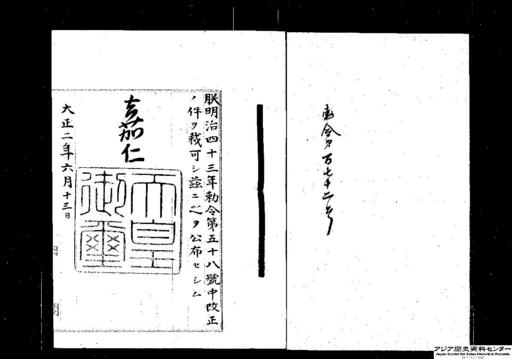 勅令第百七十二号
朕明治四十三年勅令第五十八號中改正
ノ件ヲ裁可シ茲ニ之ヲ公布セシム
嘉仁
天皇
御璽
大正二年六月十三日
アジア歴史資料センター
Japan Center for Asian Historical Records